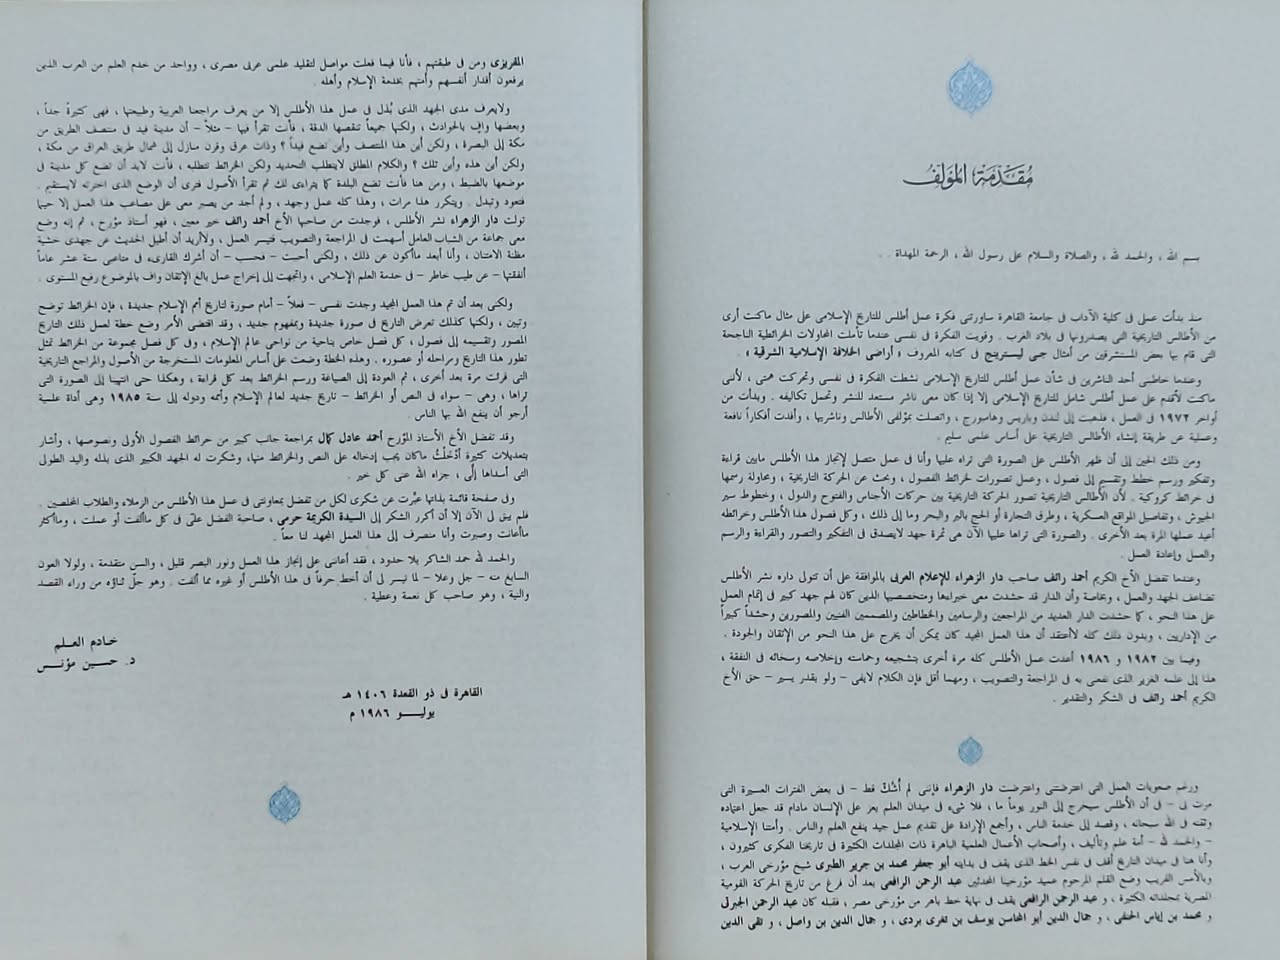 مقدمة المؤلف
بسم الله ، والحمد لله ، والصلاة والسلام على رسول الله ، الرحمة المهداة . .
منذ بدأت عملى فى كلية الآداب فى جامعة القاهرة ساورتنى فكرة عمل أطلس للتاريخ الإسلامى على مثال ماكنت أرى
من الأطالس التاريخية التى يصدرونها فى بلاد الغرب . وقويت الفكرة فى نفسى عندما تأملت المحاولات الخرائطية الناجحة
التى قام بها بعض المستشرقين من أمثال جـى ليسترينج فى كتابه المعروف « أراضى الخلافة الإسلامية الشرقية » .
وعندما خاطبنى أحد الناشرين فى شأن عمل أطلس للتاريخ الإسلامى نشطت الفكرة فى نفسى وتحركت همتى ، لأننى
ماكنت لأقدم على عمل أطلس شامل للتاريخ الإسلامى إلا إذا كان معى ناشر مستعد للنشر وتحمل تكاليفه . وبدأت من
أواخر ١٩٧٢ فى العمل ، فذهبت إلى لندن وباريس وهامبورج ، واتصلت بمؤلفى الأطالس وناشريها ، وأفدت أفكاراً نافعة
وعملية عن طريقة إنشاء الأطالس التاريخية على أساس علمى سليم .
ومن ذلك الحين إلى أن ظهر الأطلس على الصورة التى تراه عليها وأنا فى عمل متصل لإنجاز هذا الأطلس مابين قراءة
وتفكير ورسم خطط وتقسيم إلى فصول ، وعمل تصورات لخرائط الفصول ، وبحث عن الحركة التاريخية ، ومحاولة رسمها
فى خرائط كروكية . لأن الأطالس التاريخية تصور الحركة التاريخية بين حركات الأجناس والفتوح والدول ، وخطوط سير
الجيوش ، وتفاصيل المواقع العسكرية ، وطرق التجارة أو الحج بالبر والبحر وما إلى ذلك ، وكل فصول هذا الأطلس وخرائطه
أعيد عملها المرة بعد الأخرى . والصورة التى تراها عليها الآن هى ثمرة جهد لايصدق فى التفكير والتصور والقراءة والرسم
والعمل وإعادة العمل .
وعندما تفضل الأخ الكريم أحمد رائف صاحب دار الزهراء للإعلام العربى بالموافقة على أن تتولى داره نشر الأطلس
تضاعف الجهد والعمل ، وبخاصة وأن الدار قد حشدت معى خبراءها ومتخصصيها الذين كان لهم جهد كبير فى إتمام العمل
على هذا النحو ، كما حشدت الدار العديد من المراجعين والرسامين والخطاطين والمصممين الفنيين والمصورين وحشداً كبيراً
من الإداريين ، وبدون ذلك كله لاأعتقد أن هذا العمل المجيد كان يمكن أن يخرج على هذا النحو من الإتقان والجودة .
وفيما بين ١٩٨٢ و ١٩٨٦ أعدت عمل الأطلس كله مرة أخرى بتشجيعه وحماسته وإخلاصه وسخائه فى النفقة ،
هذا إلى علمه الغزير الذى نفعنى به فى المراجعة والتصويب ، ومهما أقل فإن الكلام لايفى – ولو بقدر يسير – حق الأخ
الكريم أحمد رائف فى الشكر والتقدير .
ورغم صعوبات العمل التى اعترضتنى واعترضت دار الزهراء فإننى لم أشك قط – فى بعض الفترات العسيرة التى
مرت بى – فى أن الأطلس سيخرج إلى النور يوماً ما ، فلا شىء فى ميدان العلم يعز على الإنسان مادام قد جعل اعتماده
وثقته فى الله سبحانه ، وقصد إلى خدمة الناس ، وأجمع الإرادة على تقديم عمل جيد ينفع العلم والناس . وأمتنا الإسلامية
– والحمد لله – أمة علم وتأليف ، وأصحاب الأعمال العلمية الباهرة ذات المجلدات الكثيرة فى تاريخنا الفكرى كثيرون ،
وأنا هنا فى ميدان التاريخ أقف فى نفس الخط الذى يقف فى بدايته أبو جعفر محمد بن جرير الطبرى شيخ مؤرخى العرب ،
وبالأمس القريب وضع القلم المرحوم عميد مؤرخينا المحدثين عبد الرحمن الرافعى بعد أن فرغ من تاريخ الحركة القومية
المصرية بمجلداته الكثيرة ، و عبد الرحمن الرافعى يقف فى نهاية خط باهر من مؤرخى مصر ، فقبله كان عبد الرحمن الجبرتى
و محمد بن إياس الحنفى ، و جمال الدين أبو المحاسن يوسف بن تغرى بردى ، و جمال الدين بن واصل ، و تقى الدين
المقريزى ومن فى طبقتهم ، فأنا فيما فعلت مواصل لتقليد علمى عربى مصرى ، وواحد من خدم العلم من العرب الذين
يرفعون أقدار أنفسهم وأمتهم بخدمة الإسلام وأهله .
ولايعرف مدى الجهد الذى بُذل فى عمل هذا الأطلس إلا من يعرف مراجعنا العربية وطبيعتها ، فهى كثيرةٌ جداً ،
وبعضها وافٍ بالحوادث ، ولكنها جميعاً تنقصها الدقة ، فأنت تقرأ فيها – مثلاً – أن مدينة فيد فى منتصف الطريق من
مكة إلى البصرة ، ولكن أين هذا المنتصف وأين تضع فيداً ؟ وذات عرق وقرن منازل إلى شمال طريق العراق من مكة ،
ولكن أين هذه وأين تلك ؟ والكلام المطلق لايتطلب التحديد ولكن الخرائط تتطلبه ، فأنت لابد أن تضع كل مدينة فى
موضعها بالضبط ، ومن هنا فأنت تضع البلدة كما يتراءى لك ثم تقرأ الأصول فترى أن الوضع الذى اخترته لايستقيم .
فتعود وتبدل . ويتكرر هذا مرات ، وهذا كله عمل وجهد ، ولم أجد من يصبر معى على مصاعب هذا العمل إلا حينما
تولت دار الزهراء نشر الأطلس ، فوجدت من صاحبها الأخ أحمد رائف خير معين ، فهو أستاذ مؤرخ ، ثم إنه وضع
معى جماعة من الشباب العامل أسهمت فى المراجعة والتصويب فتيسر العمل ، ولاأريد أن أطيل الحديث عن جهدى خشية
مظنة الامتنان ، وأنا أبعد ماأكون عن ذلك ، ولكنى أحببت – فحسب – أن أشرك القارىء فى متاعبى ستة عشر عاماً
أنفقتها – عن طيب خاطر – فى خدمة العلم الإسلامى ، واتجهت إلى إخراج عمل بالغ الإتقان واف بالموضوع رفيع المستوى .
ولكنى بعد أن تم هذا العمل المجيد وجدت نفسى – فعلاً – أمام صورة لتاريخ أمم الإسلام جديدة ، فإن الخرائط توضح
وتبين ، ولكنها كذلك تعرض التاريخ فى صورة جديدة وبمفهوم جديد ، وقد اقتضى الأمر وضع خطة لعمل ذلك التاريخ
المصور وتقسيمه إلى فصول ، كل فصل خاص بناحية من نواحى عالم الإسلام ، وفى كل فصل مجموعة من الخرائط تمثل
تطور هذا التاريخ ومراحله أو عصوره . وهذه الخطة وضعت على أساس المعلومات المستخرجة من الأصول والمراجع التاريخية
التى قرئت مرة بعد أخرى ، ثم العودة إلى الصياغة ورسم الخرائط بعد كل قراءة ، وهكذا حتى انتهينا إلى الصورة التى
تراها ، وهى – سواء فى النص أو الخرائط – تاريخ جديد لعالم الإسلام وأممه ودوله إلى سنة ١٩٨٥ وهى أداة علمية
أرجو أن ينفع الله بها الناس .
وقد تفضل الأخ الأستاذ المؤرخ أحمد عادل كمال بمراجعة جانب كبير من خرائط الفصول الأولى ونصوصها ، وأشار
بتعديلات كثيرة أدْخَلْتُ ماكان يجب إدخاله على النص والخرائط منها، وشكرت له الجهد الكبير الذى بذله واليد الطولى
التى أسداها إلَّى ، جزاه الله عنى كل خير .
وفى صفحة قائمة بذاتها عبَّرت عن شكرى لكل من تفضل بمعاونتى فى عمل هذا الأطلس من الزملاء والطلاب المخلصين .
فلم يبق لى الآن إلا أن أكرر الشكر إلى السيدة الكريمة حرمى ، صاحبة الفضل علىّ فى كل ماألفت أو عملت ، وماأكثر
ماأعانت وصبرت وأنا منصرف إلى هذا العمل المجهد لنا معاً .
والحمد لله حمد الشاكر بلا حدود ، فقد أعاننى على إنجاز هذا العمل ونور البصر قليل ، والسن متقدمة ، ولولا العون
السابغ منه – جل وعلا – لما تيسر لى أن أخط حرفاً فى هذا الأطلس أو غيره مما ألفت . وهو جلّ ثناؤه من وراء القصد
والنية ، وهو صاحب كل نعمة وعطية .
خادم العلم
د. حسين مؤنس
القاهرة فى ذو القعدة ١٤٠٦ هـ
يوليـــو ١٩٨٦ م